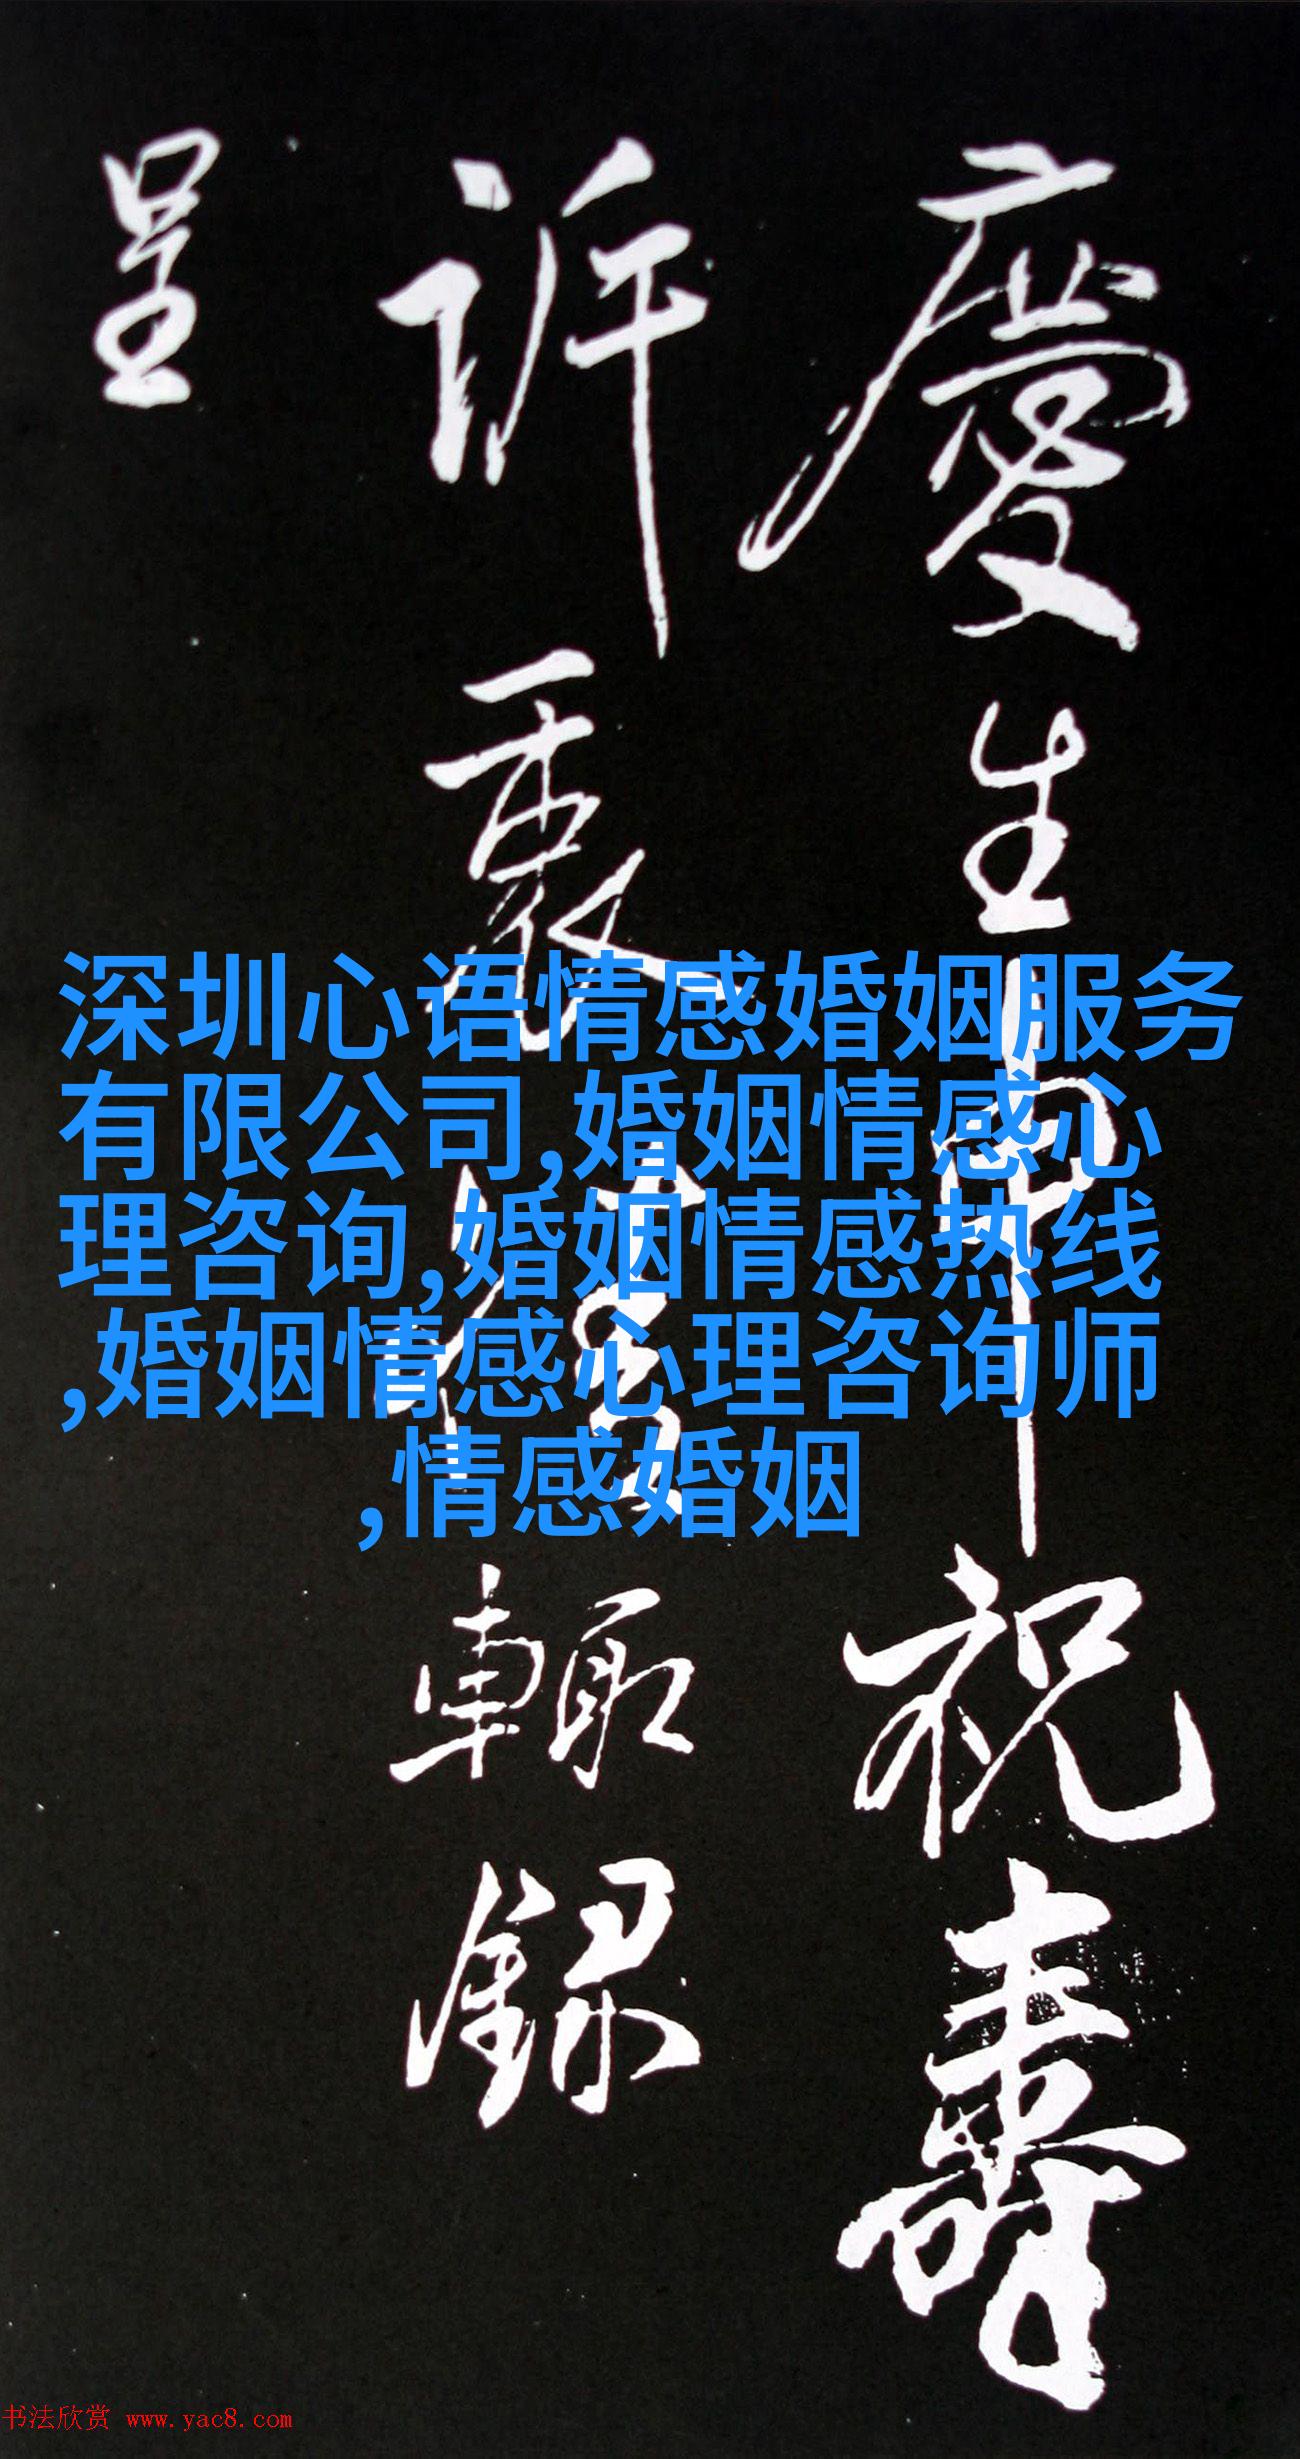 慶生申祝壽
訴衷情輒録
呈
深圳心语情感婚姻服务
有限公司,婚姻情感心
理咨询,婚姻情感热线
,婚姻情感心理咨询师
,情感婚姻
书法欣赏 www.yac8.com